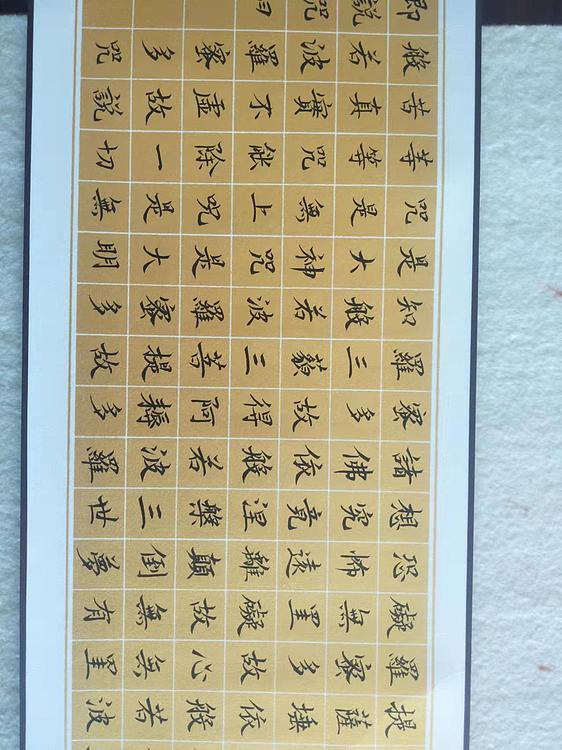 提薩埵依般若波
羅蜜多故心無罣
礙無罣礙故無有
恐怖遠離顛倒夢
想究竟涅槃三世
諸佛依般若波羅
蜜多故得阿耨多
羅三藐三菩提故
知般若波羅蜜多
是大神咒是大明
咒是無上咒是無
等等咒能除一切
苦真實不虛故說
般若波羅蜜多咒
即說咒曰